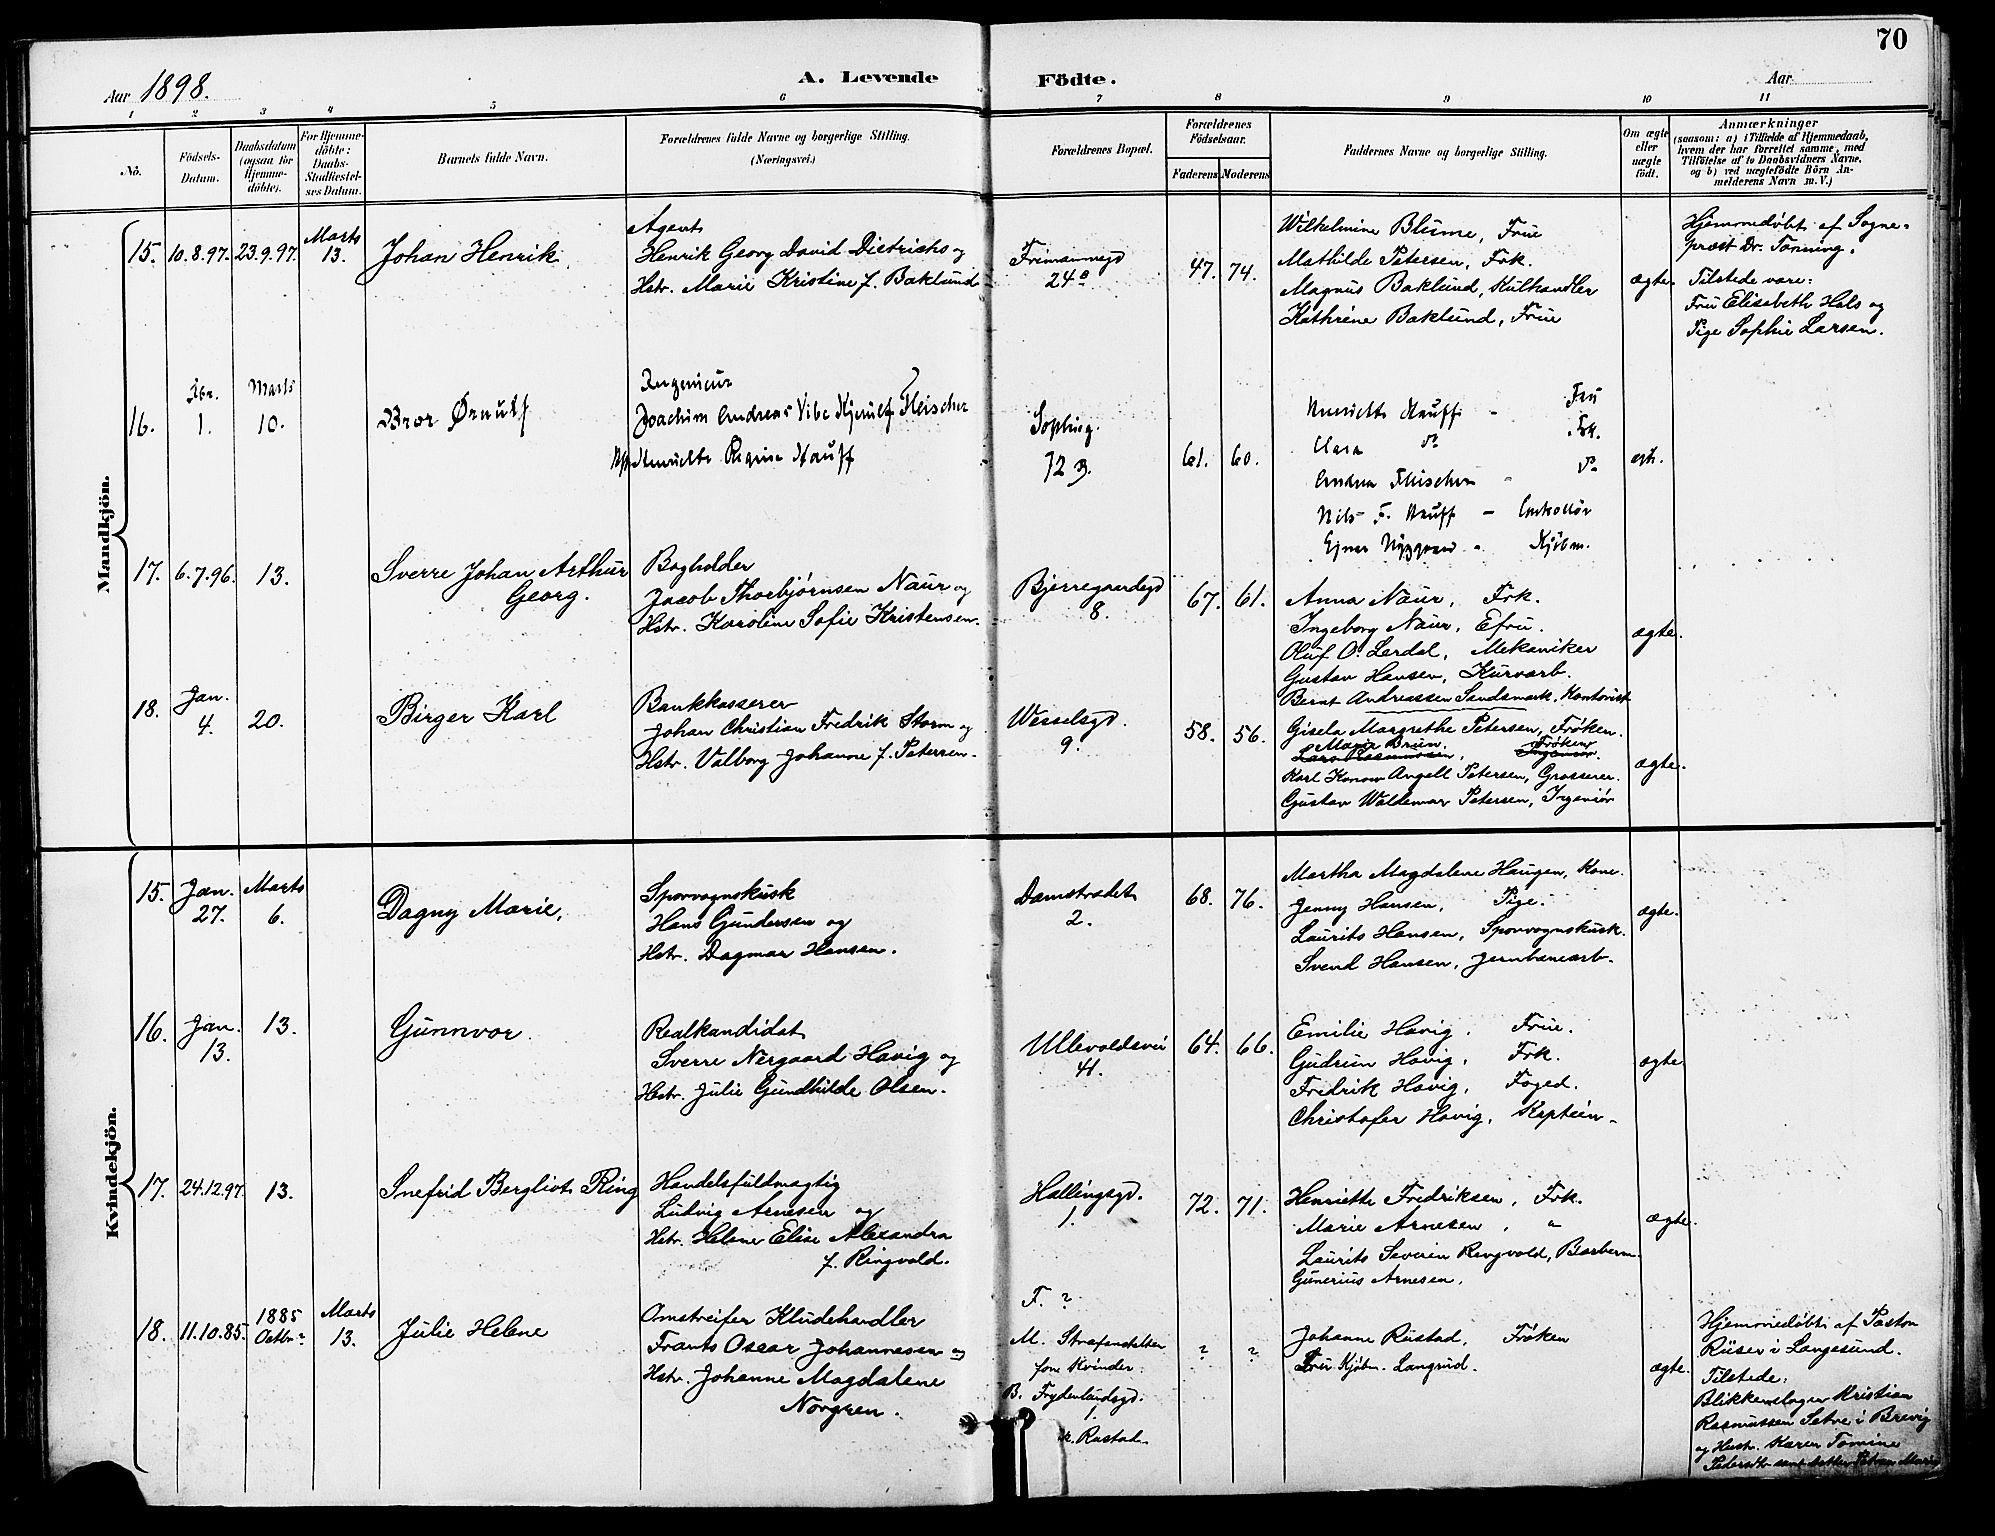 70
Aar 1898.
A. Levende Födte.
Aar
1 2 3 4 5 6 7 8 9 10 11
No.
Födsels-Datum.
Daabsdatum (ogsaa for Hjemme-döbte).
For Hjemme-döbte: Daabs-Stadfæstel-ses Datum.
Barnets fulde Navn.
Forældrenes fulde Navne og borgerlige Stilling.
(Næringsvei.)
Forældrenes Bopæl.
Forældrenes Födselsaar.
Faderens Moderens
Faddernes Navne og borgerlige Stilling.
Om ægte eller uægte födt.
Anmærkninger
(saasom: a) i Tilfælde af Hjemmedaab,
hvem der har forrettet samme, med
Tilföielse af to Daabsvidners Navne,
og b) ved uægtefödte Börn An-
melderens Navn m. V.)
Mandkjön.
15. 10.8.97. 23.9.97. Marts 13.
Johan Henrik
Agent
Henrik Georg David Dietrichs og
Hstr. Marie Kristine f. Baklund
Frimannsgd
24 B
47. 74.
Wilhelmine Blume, Frue
Mathilde Petersen, Frk.
Magnus Baklund, Kulhandler
Kathrine Baklund, Frue
ægte.
Hjemmedøbt af Sogne-
præst Dr. Tonning.
Tilstede vare:
Fru Elisabeth Hals og
Pige Sophie Larsen.
16. Fbr. 1. Marts 10.
Bror Ørnulf
Ingeniør
Joachim Andreas Vibe Kjerulf Fleischer
Henriette Regine Hauff
Sophieg.
72 B.
61. 60.
Henriette Hauff - Fru
Clara do Frk.
Andrea Fleischer - do
Nils F. Hauff - Controllør
Ejnar Nyggaard - Kjøbm.
ægt.
17. 6.7.96. 13.
Sverre Johan Arthur
Georg.
Bogholder
Jacob Thorbjørnsen Naur og
Hstr. Karoline Sofie Kristensen.
Bjerregaardsgd
8.
67. 61.
Anna Naur, Frk.
Ingeborg Naur, Efru.
Oluf O. Lerdal, Mekaniker
Gustav Hansen, Kurvarb.
Bernt Andreassen Sandsmark, Kontorist
ægte.
18. Jan. 4. 20.
Birger Karl
Bankkasserer
Johan Christian Fredrik Storm og
Hstr. Valborg Johanne f. Petersen.
Wesselsgd.
9.
58. 56.
Gisela Margrethe Petersen, Frøken.
Maria Brun. Frøken
Karl Konow Angell Petersen, Grosserer.
Gustav Waldemar Petersen, Ingeniør
ægte.
Kvindekjön.
15. Jan. 27. Marts 6.
Dagny Marie,
Sporvognskusk
Hans Gundersen og
Hstr. Dagmar Hansen.
Damstrædet
2.
68. 76.
Martha Magdalene Haugen, Kone.
Jenny Hansen, Pige.
Laurits Hansen, Sporvognskusk.
Svend Hansen, Jernbanearb.
ægte.
16. Jan. 13. 13.
Gunnvor.
Realkandidat
Sverre Nergaard Havig og
Hstr. Julie Gundhilde Olsen.
Ullevoldsvei
41.
64. 66.
Emilie Havig, Frue.
Gudrun Havig, Frk.
Fredrik Havig, Foged.
Christofer Havig, Kaptein.
ægte.
17. 24.12.97. 13.
Snefrid Bergliot Ring
Handelsfuldmægtig
Ludvig Arnesen og
Hstr. Helene Elise Alexandra
f. Ringvold.
Hallingsgd.
1.
72. 71.
Henriette Fredriksen, Frk.
Marie Arnesen, "
Laurits Severin Ringvold, Barberm.
Gunerius Arnesen.
ægte.
18. 11.10.85. 1885 Octbr? Marts 13.
Julie Helene
Omstreifer Kludehandler
Frants Oscar Johannesen og
Hstr. Johanne Magdalene
Norgren.
F. ?
M. Strafanstalten
for Kvinder.
B. Frydenlundsgd.
1.
Rustad.
? ?
Johanne Rustad, Frøken
Fru Kjøbm. Langrud.
ægte.
Hjemmedøbt af Pastor
Rüser i Langesund.
Tilstede:
Blikkenslager Kristian
Rasmussen Setre i Brevig
og Hustr. Karen Tomine